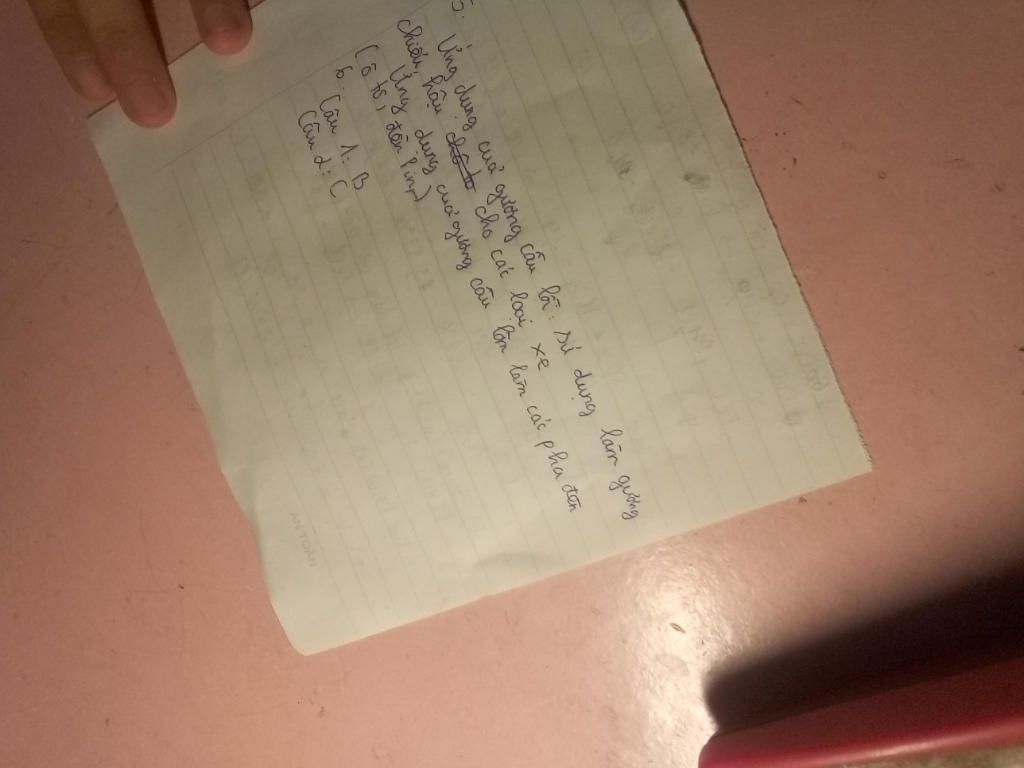 5. Ứng dụng cuả gương cầu lồi: sử dụng làm gương
chiếu hậu cho các loại xe
Ứng dụng cuả gương cầu lõm làm các pha đèn
(ô tô, đèn pin,)
6. Câu 1: B
Câu 2: C
ANTOÀN